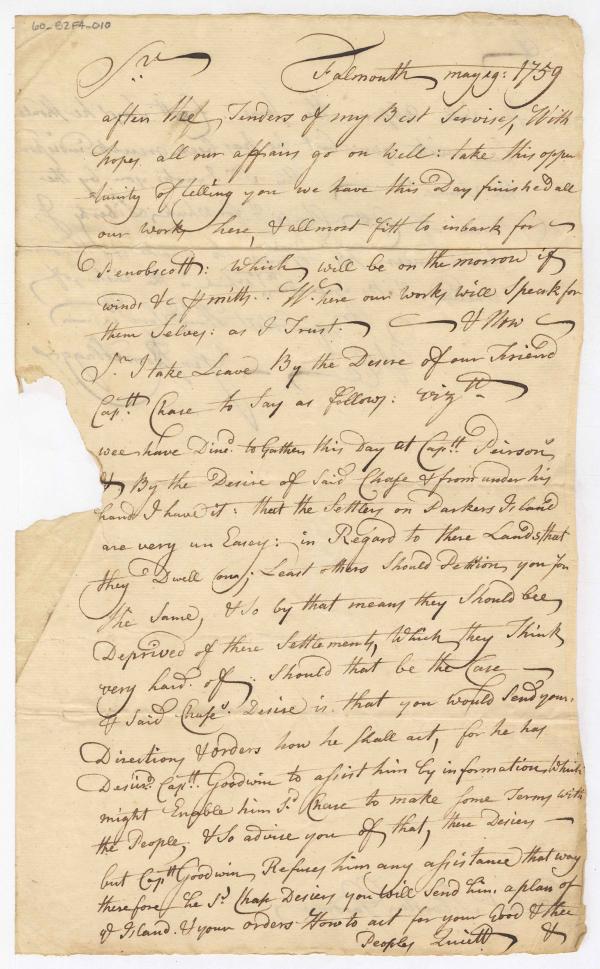 60-82F4-010
Sr. Falmouth may 19: 1759
after the Tinders of my Best Servises, With
hopes all our affairs go on Well: take this oppu
tunity of telling you we have this Day finished all
our works here, & allmost fitt to inbark for
Penobscott: Which will be on the morrow if
wind &c pmitts. Where our works will Speak for
them Selves: as I Trust. & Now
Sr. I take Leave By the Desire of our Friend
Captt. Chase to Say as follows: viztt.
wee have Dined. to Gather this Day at Captt. Peirsons
& By the Desire of Said Chase & from under his
hand I have it: that the Settlers on Parkers Island
are very un Easey: in Regard to there Lands, that
they Dwell on; Least others Should Petition you for
the Same, & So by that means they Should bee
Deprived of there Settlements, Which they Think
very hard of: Should that be the Case
& Said Chases. Desire is that you would Send your
Directions & orders how he Shall act, for he has
Desird. Captt. Goodwin to assist him by information Which
might Enable him Sd. Chase to make some Terms with
the People, & So advise you of that, there Desiers
but Captt. Goodwin Refuses him any assistance that way
therefore he Sd. Chase Desiers you will Send him a plan of
& Island. & your orders How to act for your Good & thee
Peoples Quiett. &